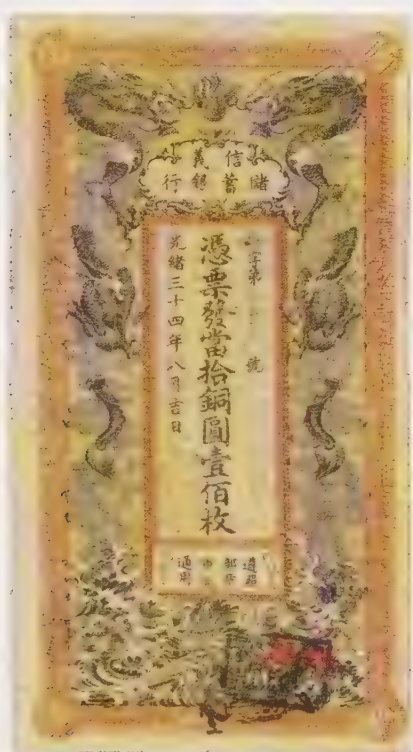 信義儲蓄銀行
字第 號
憑票發當拾銅圓壹佰枚
光緒三十四年八月吉日
遵照
部
市
通用